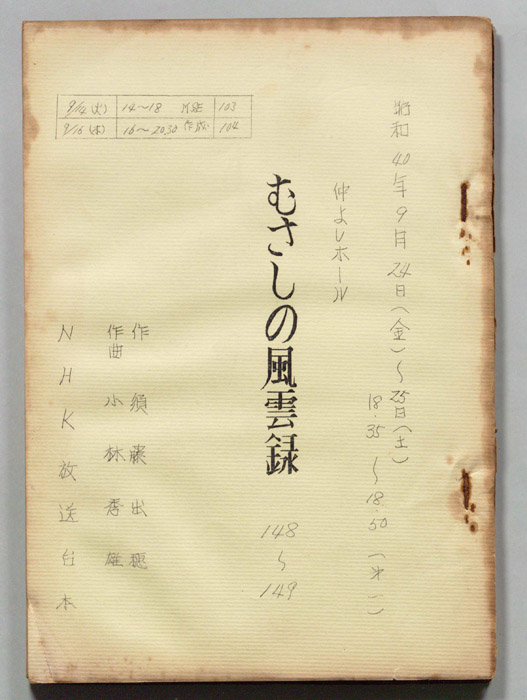 昭和40年9月24日(金)~25日(土)
18.35~18.50(オ一)
仲よしホール
むさしの風雲録
148~149
9/14(火) 14~18 103
9/16(木) 16~20.30 作成 104
作 須藤出穂
作曲 小林秀雄
NHK放送台本